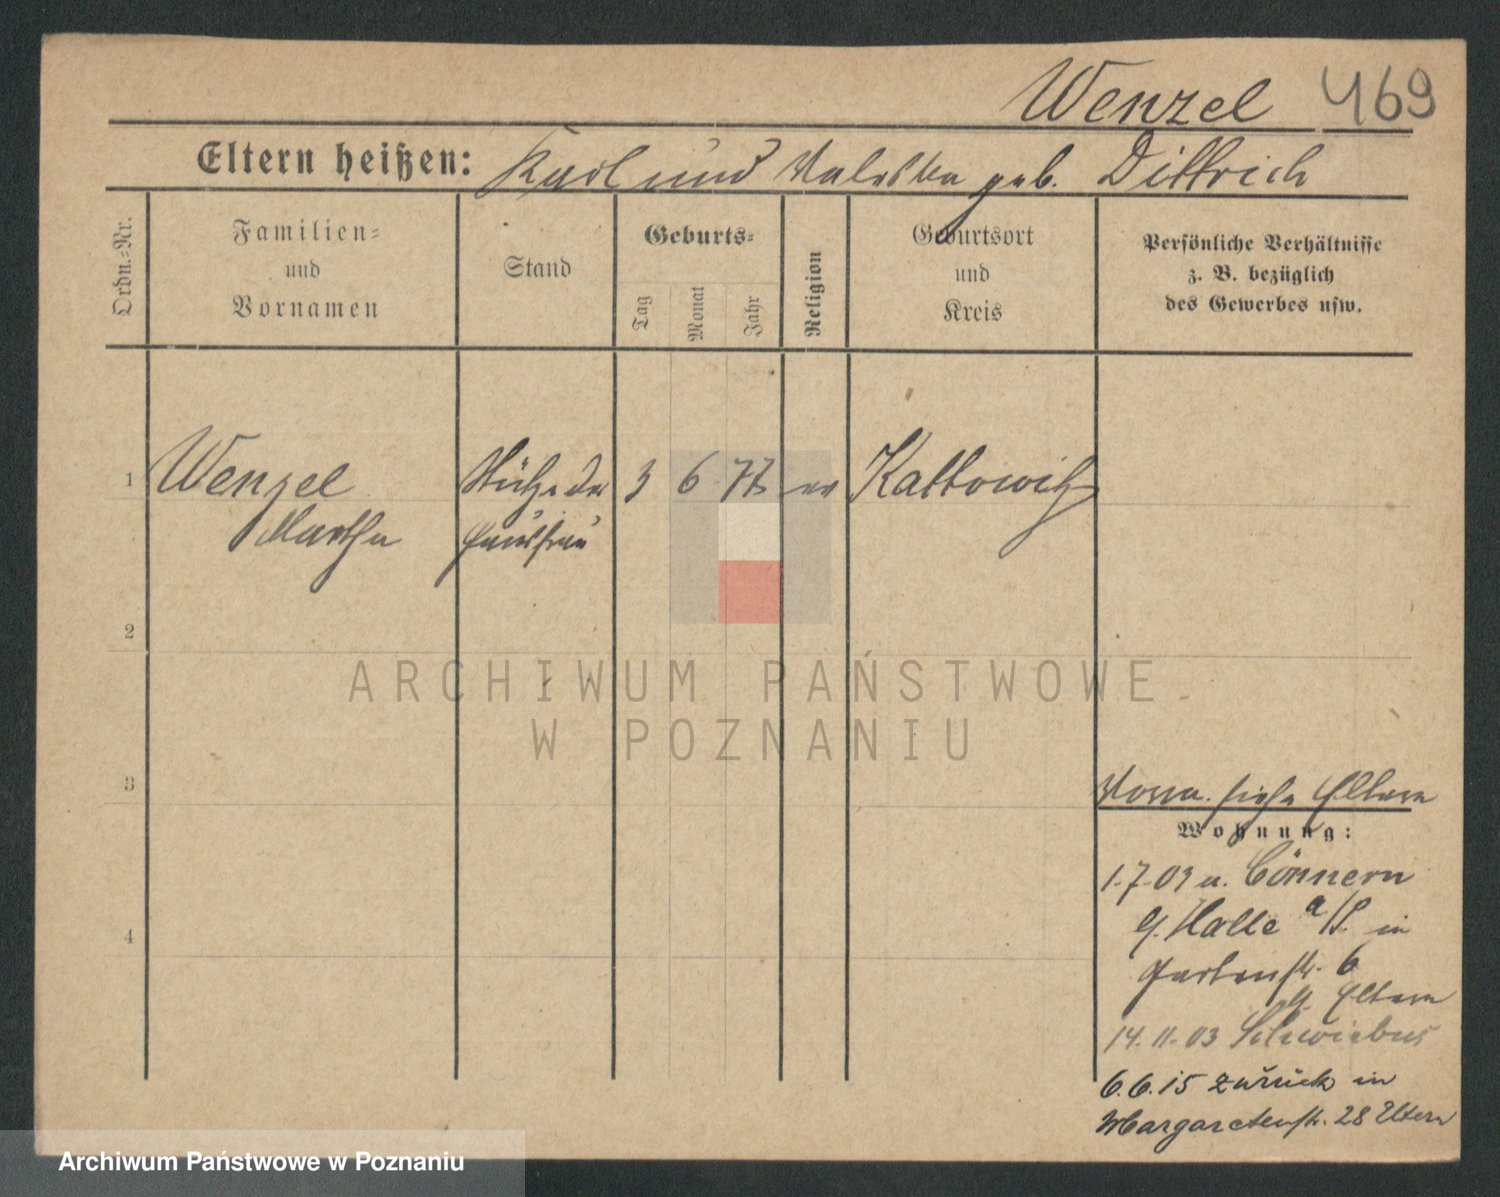 Wenzel 469
Eltern heißen: Karl und Valeska geb. Dittrich
Ordn.-Nr.
Familien-
und
Vornamen
Stand
Geburts-
Tag
Monat
Jahr
Religion
Geburtsort
und
Kreis
Persönliche Verhältnisse
z. B. bezüglich
des Gewerbes usw.
1 Wenzel Stütze der 3 6 77 ev Kattowitz
Martha Hausfrau
2
3
4
siehe Eltern
Wohnung:
1.7.03 n. Cönnern
b. Halle a/S. in
Gartenstr. 6
b. Eltern
14.11.03 Schwiebus
6.6.15 zurück in
Margaretenstr. 28 Eltern
ARCHIWUM PAŃSTWOWE
W POZNANIU
Archiwum Państwowe w Poznaniu